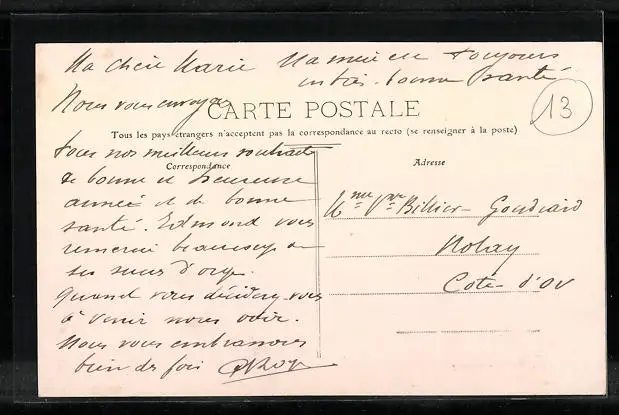 Ma chère Marie Ma mère est toujours
en très bonne santé
Nous vous envoyons
CARTE POSTALE
13
Tous les pays étrangers n'acceptent pas la correspondance au recto (se renseigner à la poste)
tous nos meilleurs souhaits
Correspondance
Adresse
de bonne et heureuse
année et de bonne
santé. Edmond vous
remercie beaucoup de
ses sucres d'orge.
Quand vous déciderez-vous
à venir nous voir.
Nous vous embrassons
bien des fois
Mme Vve Billier-Goudiard
Nolay
Côte-d'Or